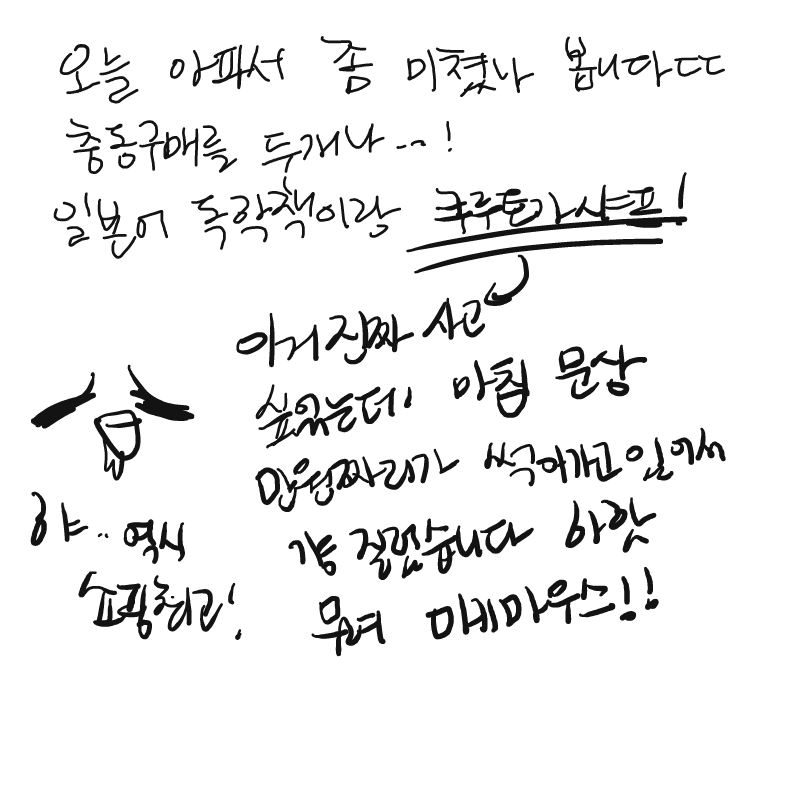 오늘 아파서 좀 미쳤나 봅니다ㄷㄷ
충동구매를 두개나...!
일본어 독학책이랑 쿠루토가샤프!
이거 진짜 사고
싶었는데 마침 문상
만원짜리가 썩어가고있어서
걍 질렀습니다 하핫
무려 미키마우스!!
햐.. 역시
쇼핑최고!